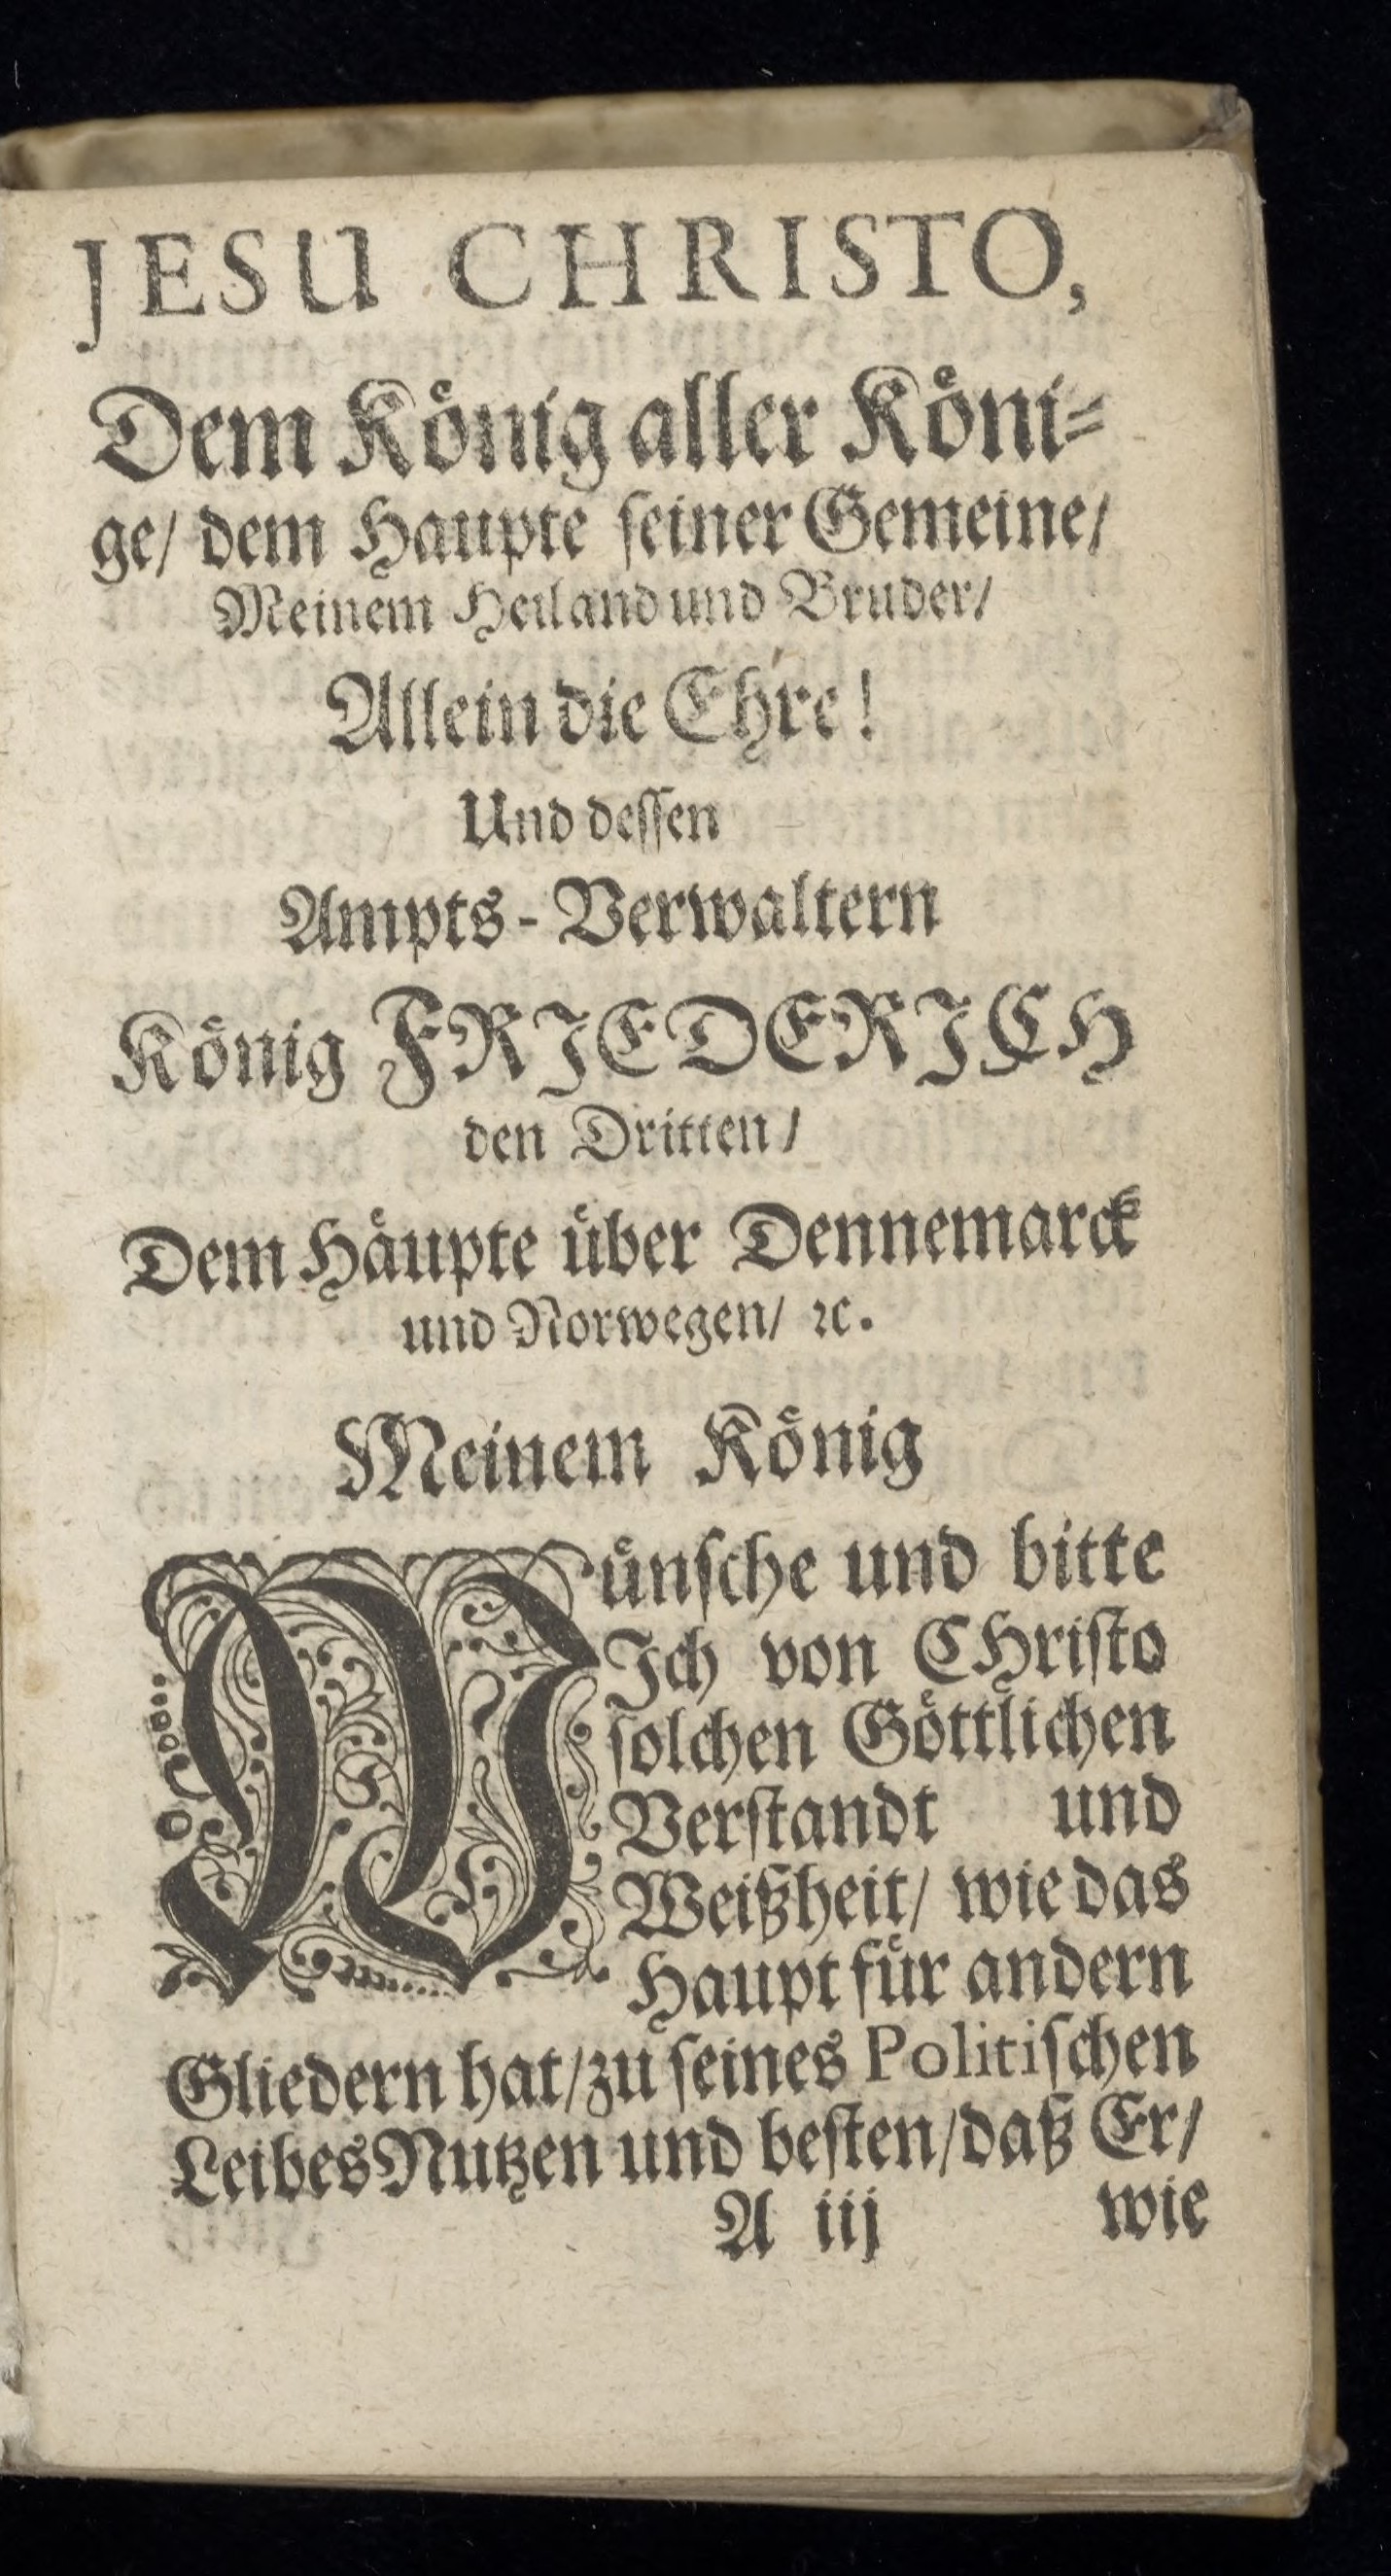 JESU CHRISTO,
Dem Koͤnig aller Koͤni⸗
ge/ dem Haupte ſeiner Gemeine/
Meinem Heiland und Bruder/
Allein die Ehre!
Und deſſen
Ampts-Verwaltern
Koͤnig FRIEDERICH
den Dritten/
Dem Haͤupte uͤber Dennemarck
und Norwegen/ ꝛc.
Meinem Koͤnig
Wuͤnſche und bitte
Ich von CHriſto
ſolchen Goͤttlichen
Verſtandt und
Weißheit/ wie das
Haupt fuͤr andern
Gliedern hat/ zu ſeines Politiſchen
Leibes Nutzen und beſten/ daß Er/
A iij wie